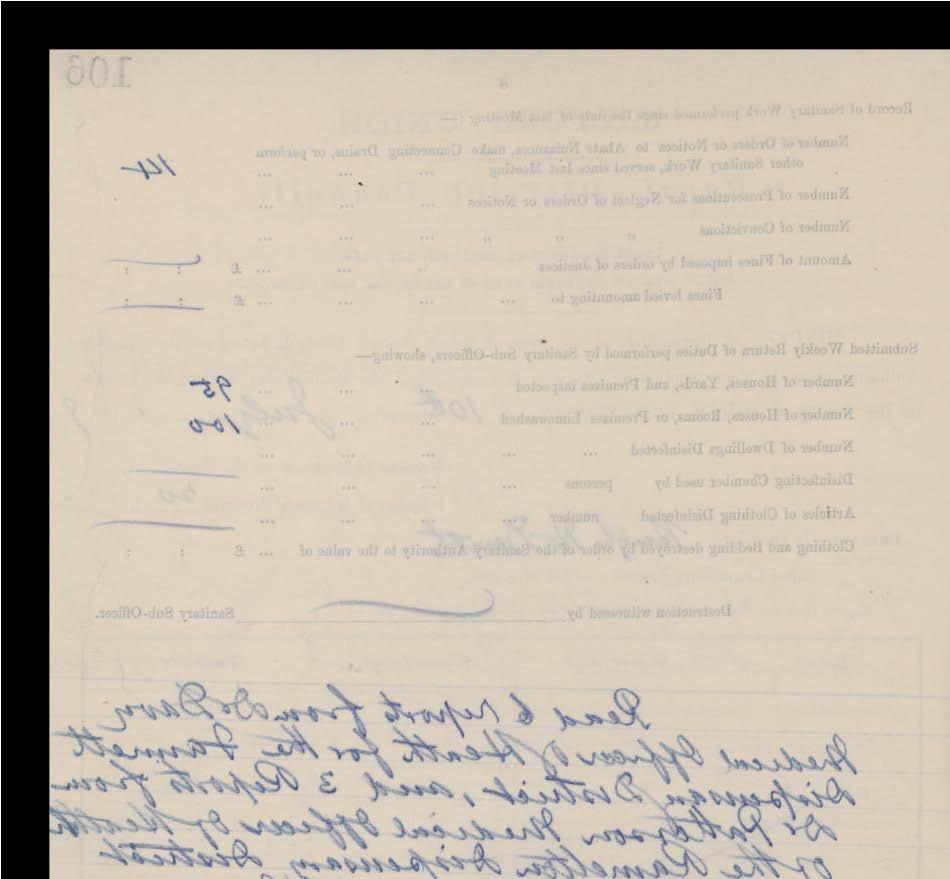 106
Record of Sanitary Work performed since the date of last Meeting :—
Number of Orders or Notices to Abate Nuisances, make Connecting Drains, or perform
other Sanitary Work, served since last Meeting ... ... ... 14
Number of Prosecutions for Neglect of Orders or Notices ... ... ...
Number of Convictions " " " ... ... ...
Amount of Fines imposed by orders of Justices " ... ... £ : :
Fines levied amounting to ... ... ... ... £ : :
Submitted Weekly Return of Duties performed by Sanitary Sub-Officers, showing—
Number of Houses, Yards, and Premises inspected ... ... ... 95
Number of Houses, Rooms, or Premises Limewashed ... ... ... 100
Number of Dwellings Disinfected ... ... ... ... ...
Disinfecting Chamber used by persons ... ... ... ...
Articles of Clothing Disinfected number ... ... ... ...
Clothing and Bedding destroyed by order of the Sanitary Authority to the value of ... £ : :
Destruction witnessed by Sanitary Sub-Officer.
Read 6 reports from Dr
Medical Officer of Heath for the
Dispensary District, and 3 Reports from
Dr Patterson Medical Officer of Heath
of the Ramelton Dispensary District